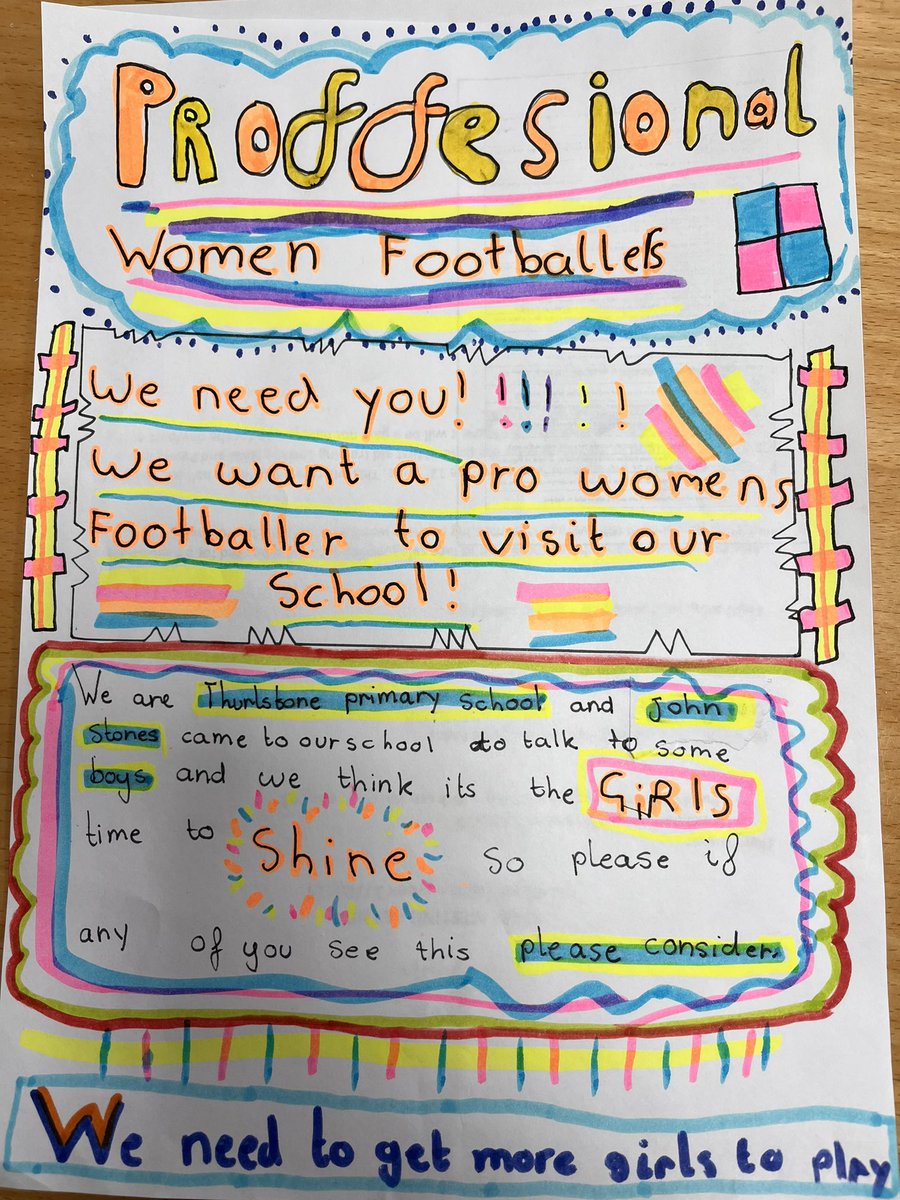 Proffesional
Women Footballers
We need you! !!!! ! !
We want a pro womens
Footballer to visit our
School!
We are Thurlstone primary School and John
Stones came to our school to talk to some
boys and we think its the GiRlS
time to Shine so please if
any of you see this please consider
We need to get more girls to play